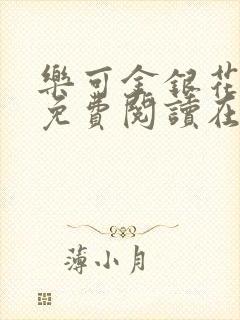 樂可金銀花
免費閱讀在
薄小月